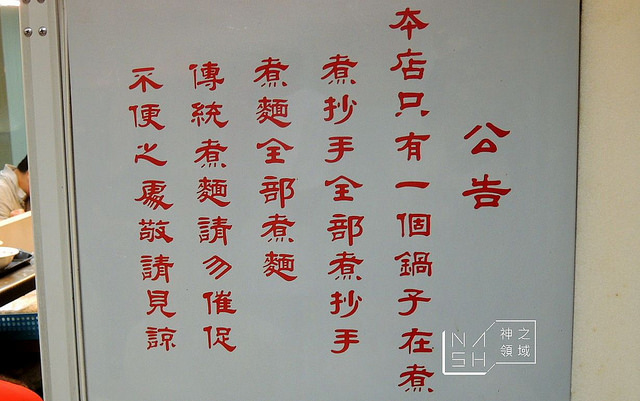 公告
本店只有一個鍋子在煮
煮抄手全部煮抄手
煮麵全部煮麵
傳統煮麵請勿催促
不便之處敬請見諒
NASH
神之領域